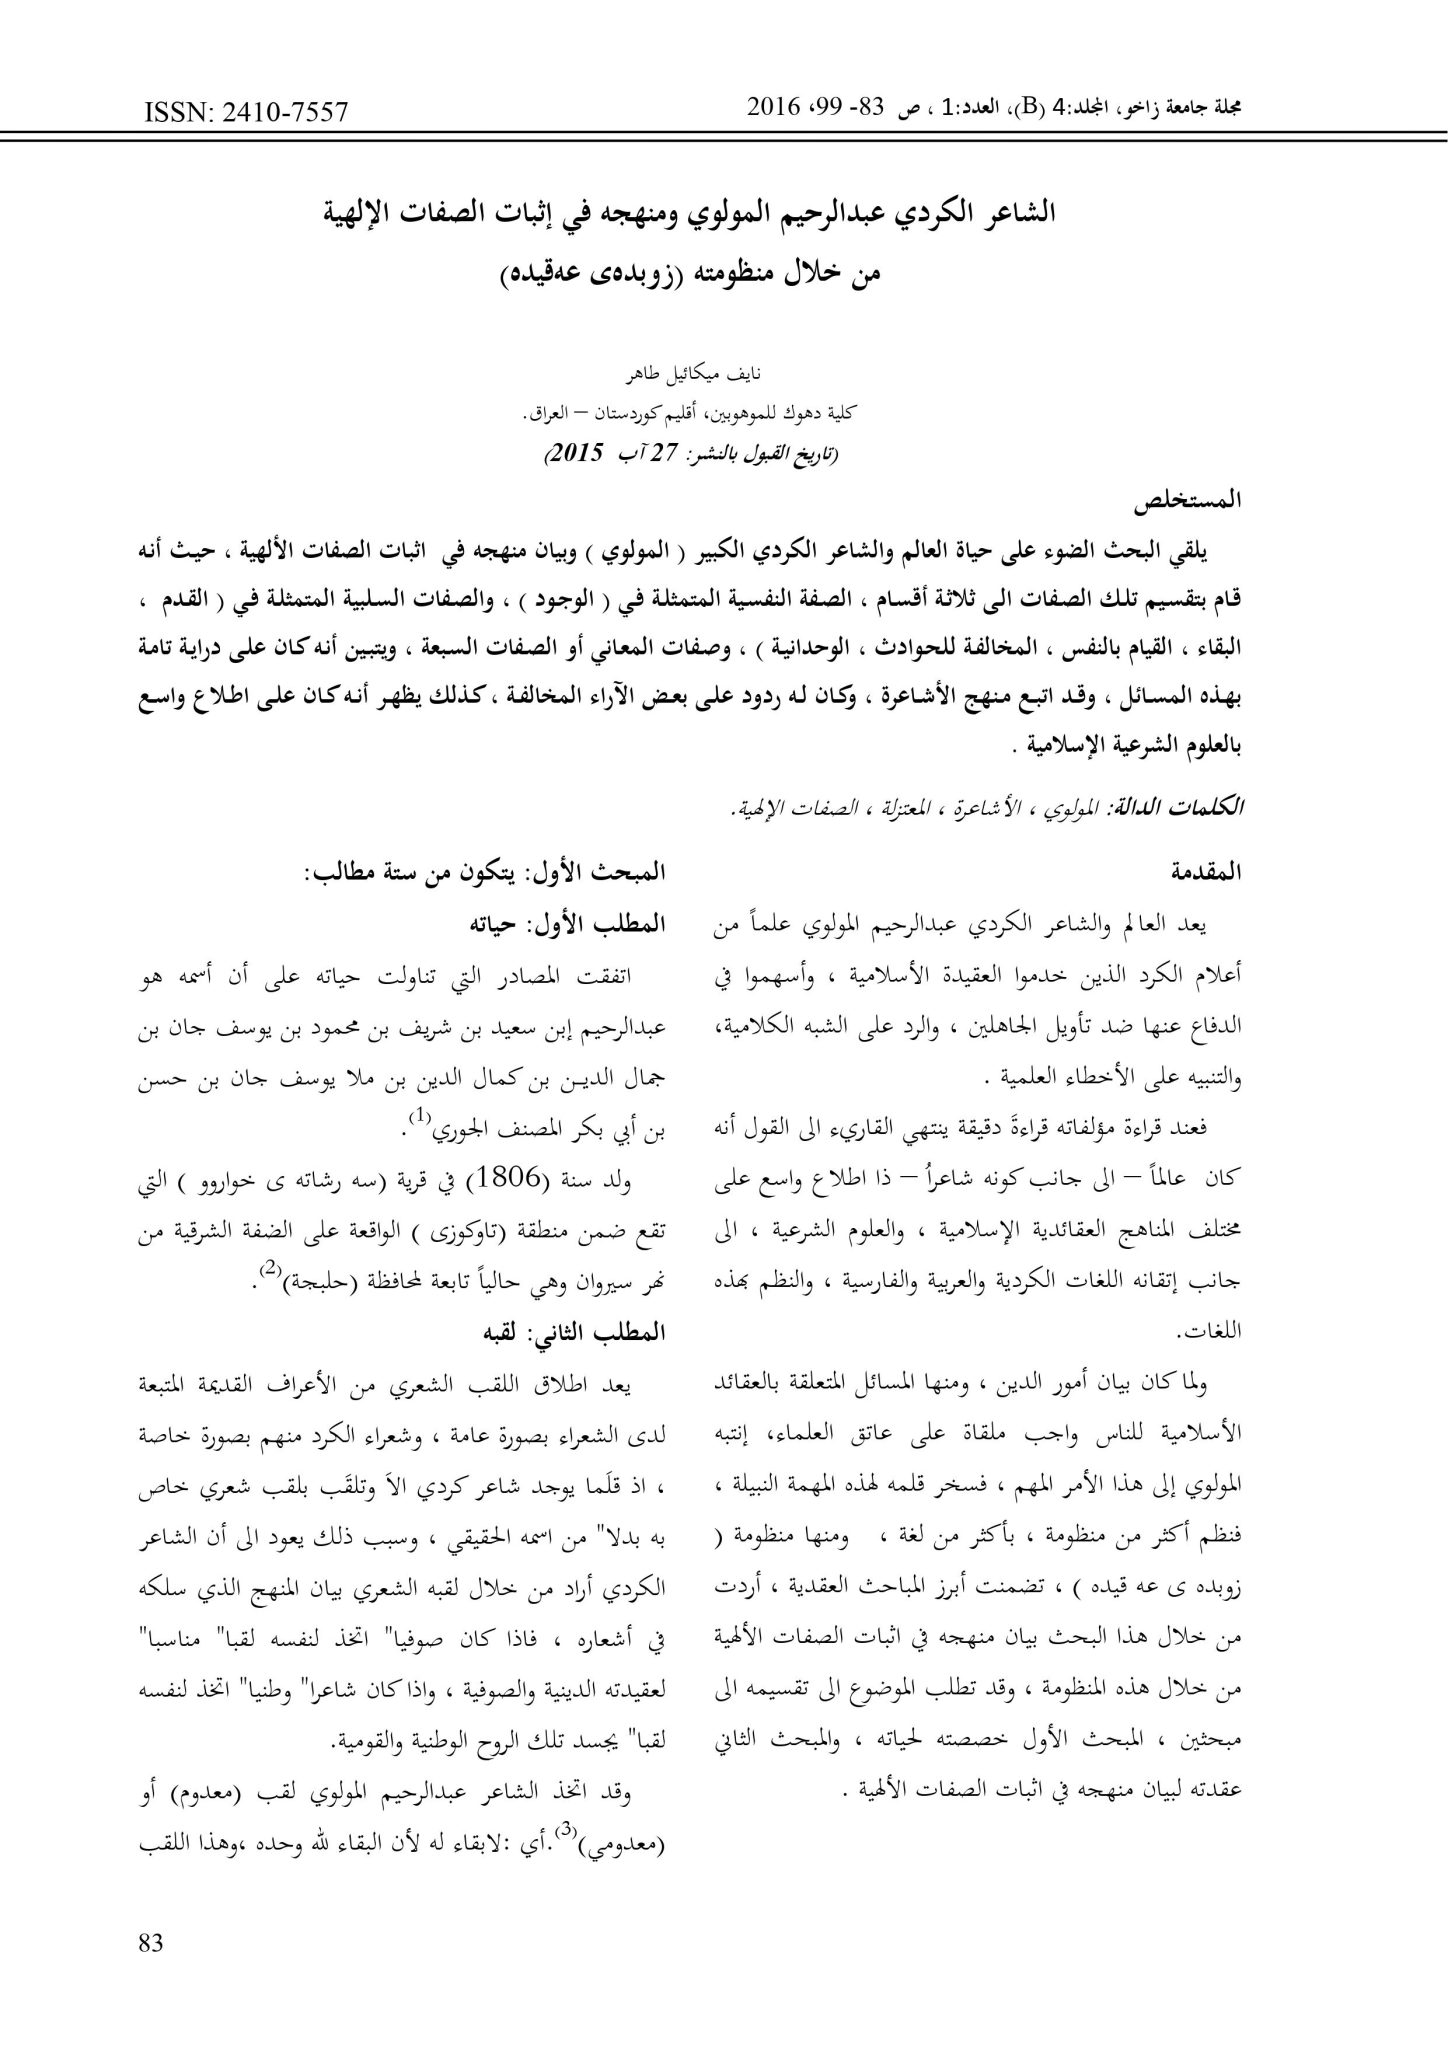 مجلة جامعة زاخو، المجلد:4 (B)، العدد:1 ، ص 83- 99، 2016
ISSN: 2410-7557
الشاعر الكردي عبدالرحيم المولوي ومنهجه في إثبات الصفات الإلهية
من خلال منظومته (زوبدەى عەقیدە)
نايف ميكائيل طاهر
كلية دهوك للموهوبين، أقليم كوردستان – العراق.
(تاريخ القبول بالنشر: 27 آب 2015)
المستخلص
يلقي البحث الضوء على حياة العالم والشاعر الكردي الكبير ( المولوي ) وبيان منهجه في اثبات الصفات الألهية ، حيث أنه
قام بتقسيم تلك الصفات الى ثلاثة أقسام ، الصفة النفسية المتمثلة في ( الوجود ) ، والصفات السلبية المتمثلة في ( القدم ،
البقاء ، القيام بالنفس ، المخالفة للحوادث ، الوحدانية ) ، وصفات المعاني أو الصفات السبعة ، ويتبين أنه كان على دراية تامة
بهذه المسائل ، وقد اتبع منهج الأشاعرة ، وكان له ردود على بعض الآراء المخالفة ، كذلك يظهر أنه كان على اطلاع واسع
بالعلوم الشرعية الإسلامية .
الكلمات الدالة: المولوي ، الأشاعرة ، المعتزلة ، الصفات الإلهية.
المقدمة
يعد العالم والشاعر الكردي عبدالرحيم المولوي علماً من
أعلام الكرد الذين خدموا العقيدة الأسلامية ، وأسهموا في
الدفاع عنها ضد تأويل الجاهلين ، والرد على الشبه الكلامية،
والتنبيه على الأخطاء العلمية .
فعند قراءة مؤلفاته قراءةَ دقيقة ينتهي القاريء الى القول أنه
كان عالماً – الى جانب كونه شاعراُ – ذا اطلاع واسع على
مختلف المناهج العقائدية الإسلامية ، والعلوم الشرعية ، الى
جانب إتقانه اللغات الكردية والعربية والفارسية ، والنظم بهذه
اللغات.
ولما كان بيان أمور الدين ، ومنها المسائل المتعلقة بالعقائد
الأسلامية للناس واجب ملقاة على عاتق العلماء، إنتبه
المولوي إلى هذا الأمر المهم ، فسخر قلمه لهذه المهمة النبيلة ،
فنظم أكثر من منظومة ، بأكثر من لغة ، ومنها منظومة (
زوبده ى عه قيده ) ، تضمنت أبرز المباحث العقدية ، أردت
من خلال هذا البحث بيان منهجه في اثبات الصفات الألهية
من خلال هذه المنظومة ، وقد تطلب الموضوع الى تقسيمه الى
مبحثين ، المبحث الأول خصصته لحياته ، والمبحث الثاني
عقدته لبيان منهجه في اثبات الصفات الألهية .
المبحث الأول: يتكون من ستة مطالب:
المطلب الأول: حياته
اتفقت المصادر التي تناولت حياته على أن أسمه هو
عبدالرحيم إبن سعيد بن شريف بن محمود بن يوسف جان بن
جمال الدين بن كمال الدين بن ملا يوسف جان بن حسن
بن أبي بكر المصنف الجوري(1).
ولد سنة (1806) في قرية (سه رشاته ى خواروو ) التي
تقع ضمن منطقة (تاوكوزى ) الواقعة على الضفة الشرقية من
نهر سيروان وهي حالياً تابعة لمحافظة (حلبجة)(2).
المطلب الثاني: لقبه
يعد اطلاق اللقب الشعري من الأعراف القديمة المتبعة
لدى الشعراء بصورة عامة ، وشعراء الكرد منهم بصورة خاصة
، اذ قلَما يوجد شاعر كردي الاَ وتلقَب بلقب شعري خاص
به بدلا" من اسمه الحقيقي ، وسبب ذلك يعود الى أن الشاعر
الكردي أراد من خلال لقبه الشعري بيان المنهج الذي سلكه
في أشعاره ، فاذا كان صوفيا" اتخذ لنفسه لقبا" مناسبا"
لعقيدته الدينية والصوفية ، واذا كان شاعرا" وطنيا" اتخذ لنفسه
لقبا" يجسد تلك الروح الوطنية والقومية.
وقد اتخذ الشاعر عبدالرحيم المولوي لقب (معدوم) أو
(معدومي)(3).أي :لابقاء له لأن البقاء لله وحده ،وهذا اللقب
83